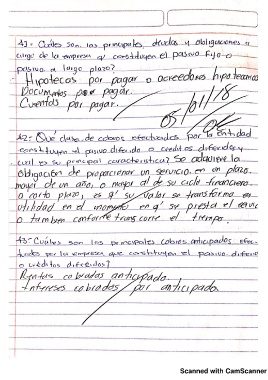 41.- Cuáles son las principales deudas y obligaciones a
cargo de la empresa q' constituyen el pasivo fijo o
pasivo a largo plazo?
Hipotecas por pagar o acreedores hipotecarios
Documentos por pagar.
Cuentas por pagar.
05/01/18
42.- Qué clase de cobros efectuados por la entidad
constituyen el pasivo diferido o créditos diferidos y
cuál es su principal característica? Se adquiere la
obligación de proporcionar un servicio en un plazo
mayor de un año, o mayor al de su ciclo financiero
a corto plazo, es q' su valor se transforma en
utilidad en el momento en q' se presta el servicio
o también conforme transcurre el tiempo.
43.- Cuáles son los principales cobros anticipados efec-
tuados por la empresa que constituyen el pasivo diferido
o créditos diferidos?
Rentas cobradas anticipado.
Intereses cobrados por anticipado.
Scanned with CamScanner